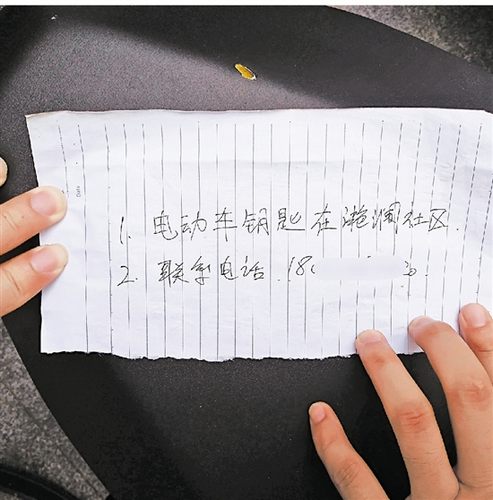 Date
1. 电动车钥匙在滟澜社区.
2. 联系电话 18